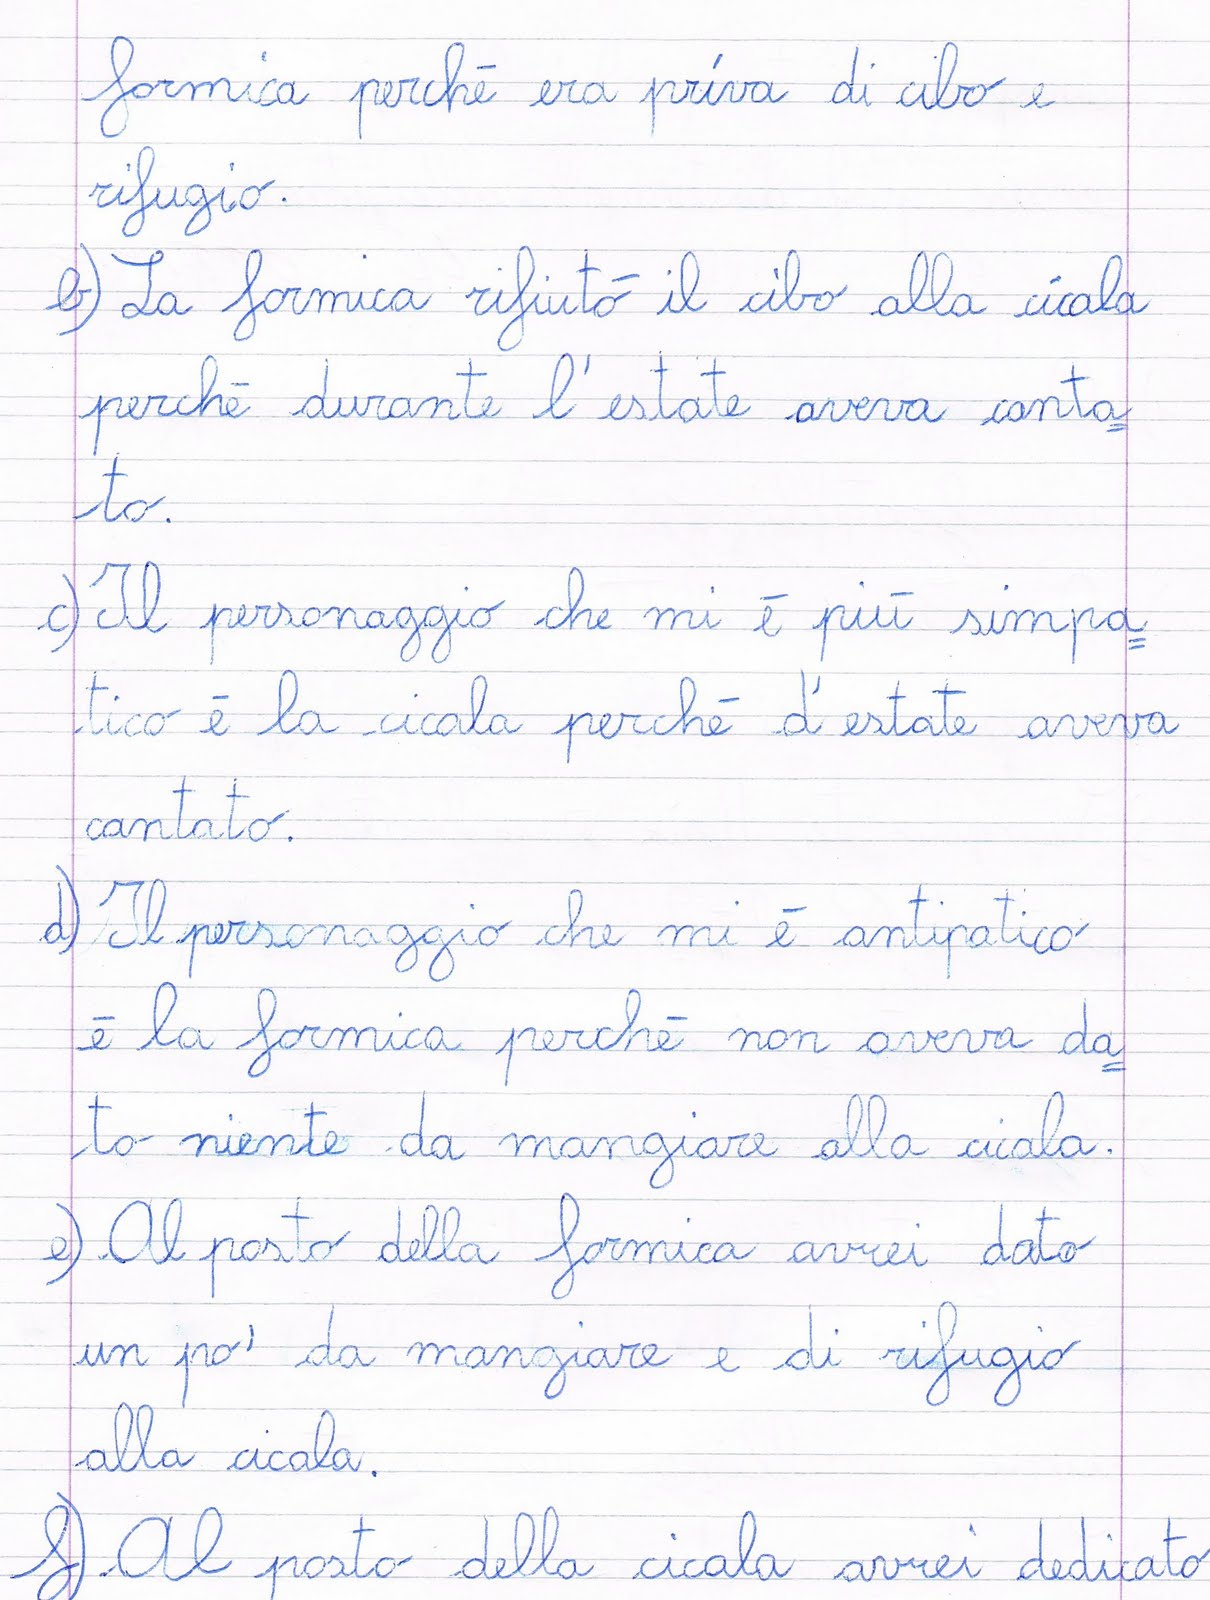 formica perchē era príva di cibo e
rifugio.
b) La formica rifiutō il cibo alla cicala
perchē durante l'estate aveva canta=
to.
c) Il personaggio che mi ē piū simpa=
tico ē la cicala perchē d'estate aveva
cantato.
d) Il personaggio che mi ē antipatico
ē la formica perchē non aveva da=
to niente da mangiare alla cicala.
e) Al posto della formica avrei dato
un po' da mangiare e di rifugio
alla cicala.
f) Al posto della cicala avrei dedicato